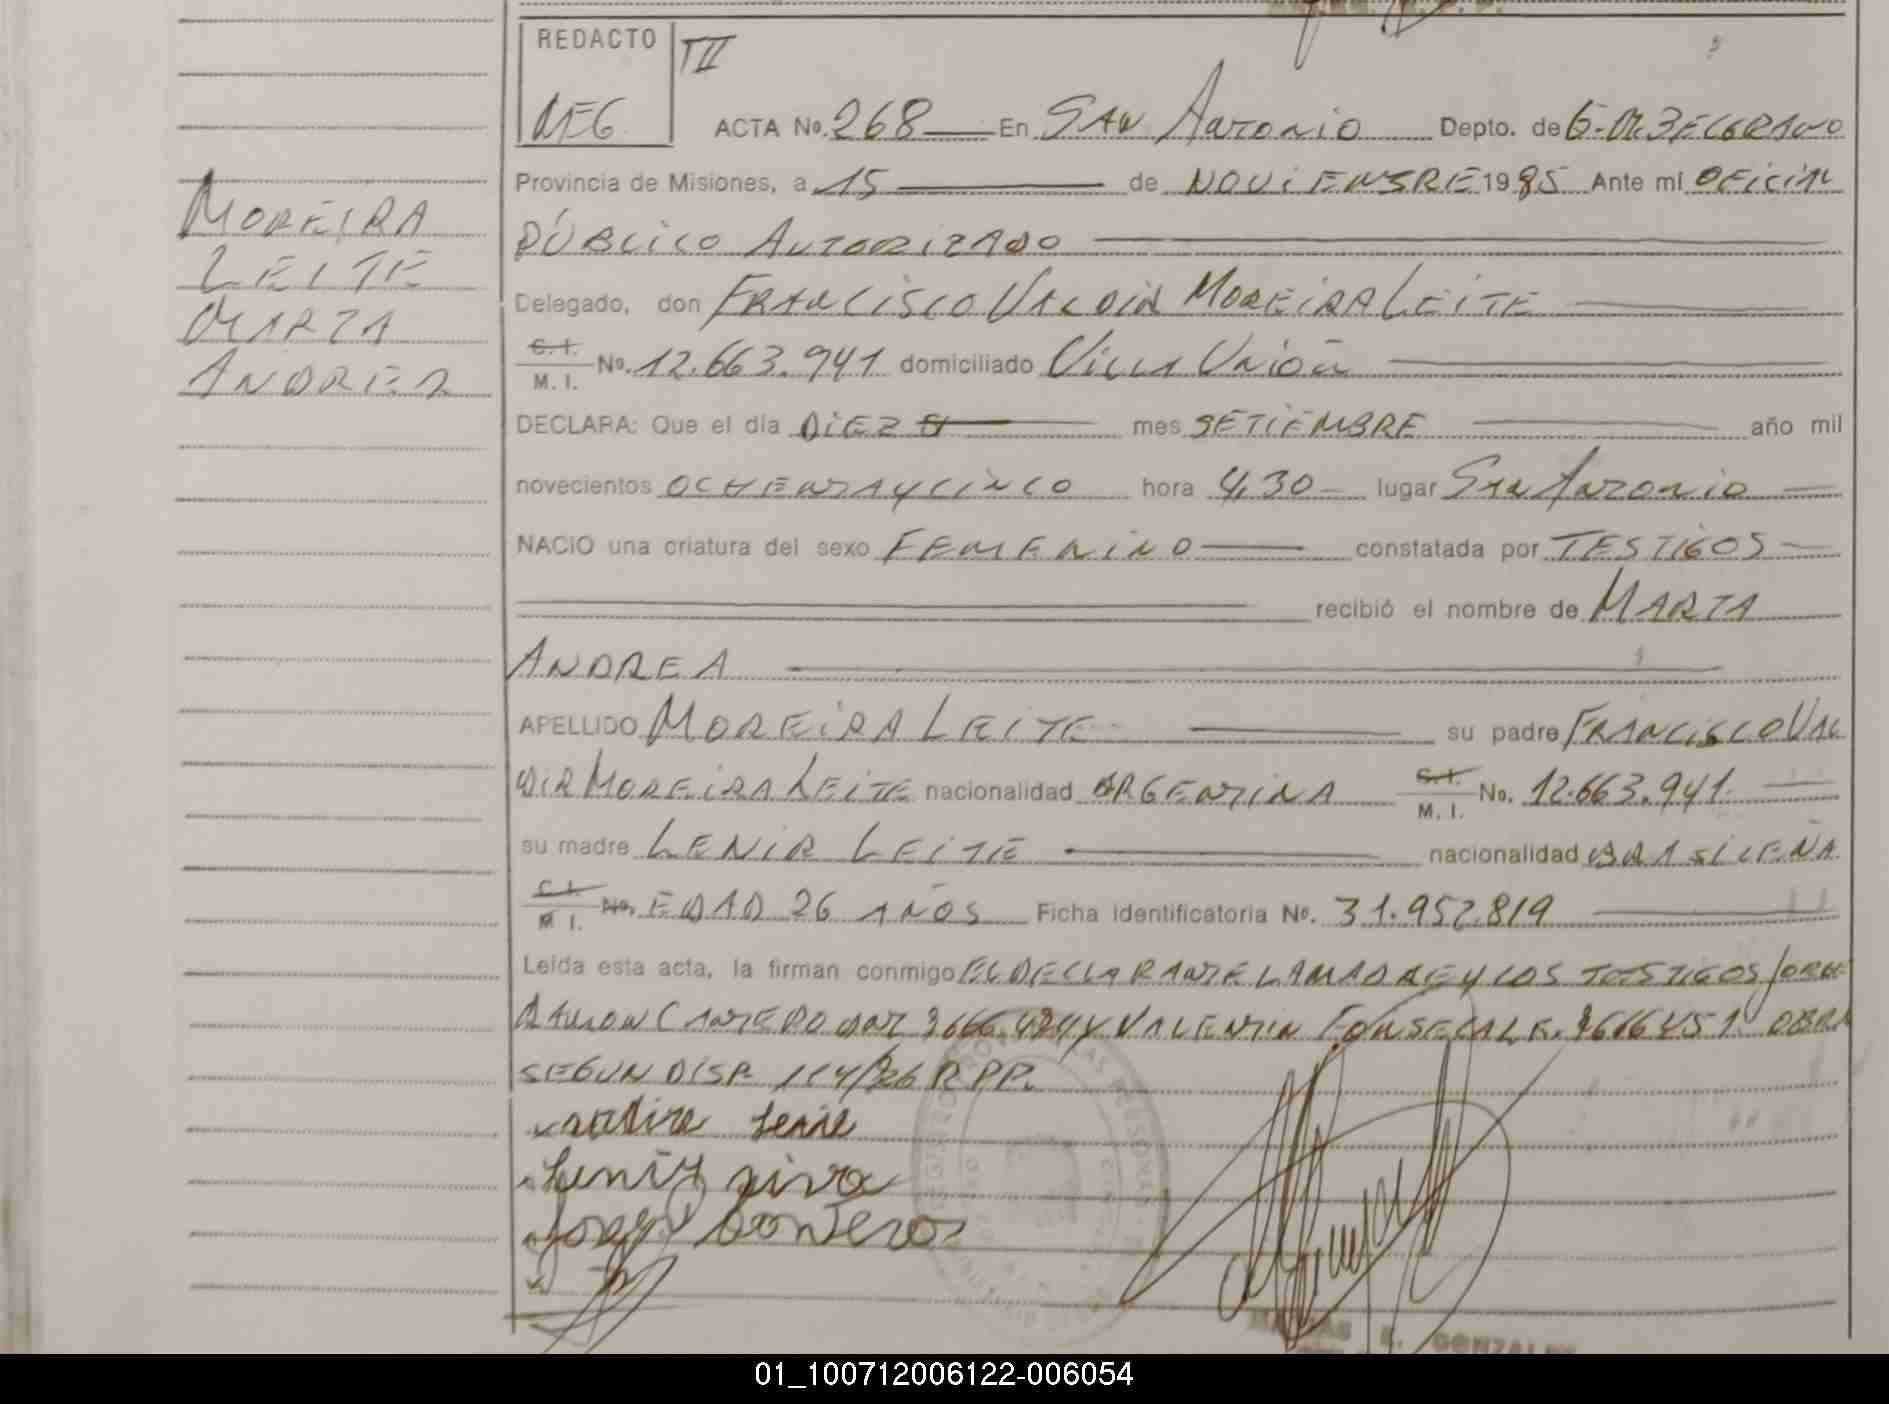 REDACTO TII
MEG
ACTA No. 268 En SAN ANTONIO Depto. de G. M. BELGRANO
Provincia de Misiones, a 15 de NOVIEMBRE 1985 Ante mí OFICIAL
PÚBLICO AUTORIZADO
Delegado, don FRANCISCO VALDIR MOREIRA LEITE
C. I.
M. I. No. 12.663.941 domiciliado VILLA UNIÓN
DECLARA: Que el día DIEZ mes SETIEMBRE año mil
novecientos OCHENTA Y CINCO hora 4,30 lugar SAN ANTONIO
NACIO una criatura del sexo FEMENINO constatada por TESTIGOS
recibió el nombre de MARTA
ANDREA
APELLIDO MOREIRA LEITE su padre FRANCISCO VAL
DIR MOREIRA LEITE nacionalidad ARGENTINA C. I. M. I. No. 12.663.941
su madre LENIR LEITE nacionalidad BRASILEÑA
C. I.
M. I. No. EDAD 26 AÑOS Ficha identificatoria No. 31.952.819
Leída esta acta, la firman conmigo EL DECLARANTE LA MADRE Y LOS TESTIGOS JORGE
RAMON CANTERO Y VALENTIN FONSECA L.E. OBRA
SEGUN DISP. 114/ RPP.
Jorge Canteros
MOREIRA
LEITE
MARTA
ANDREA
GONZALEZ
01_100712006122-006054